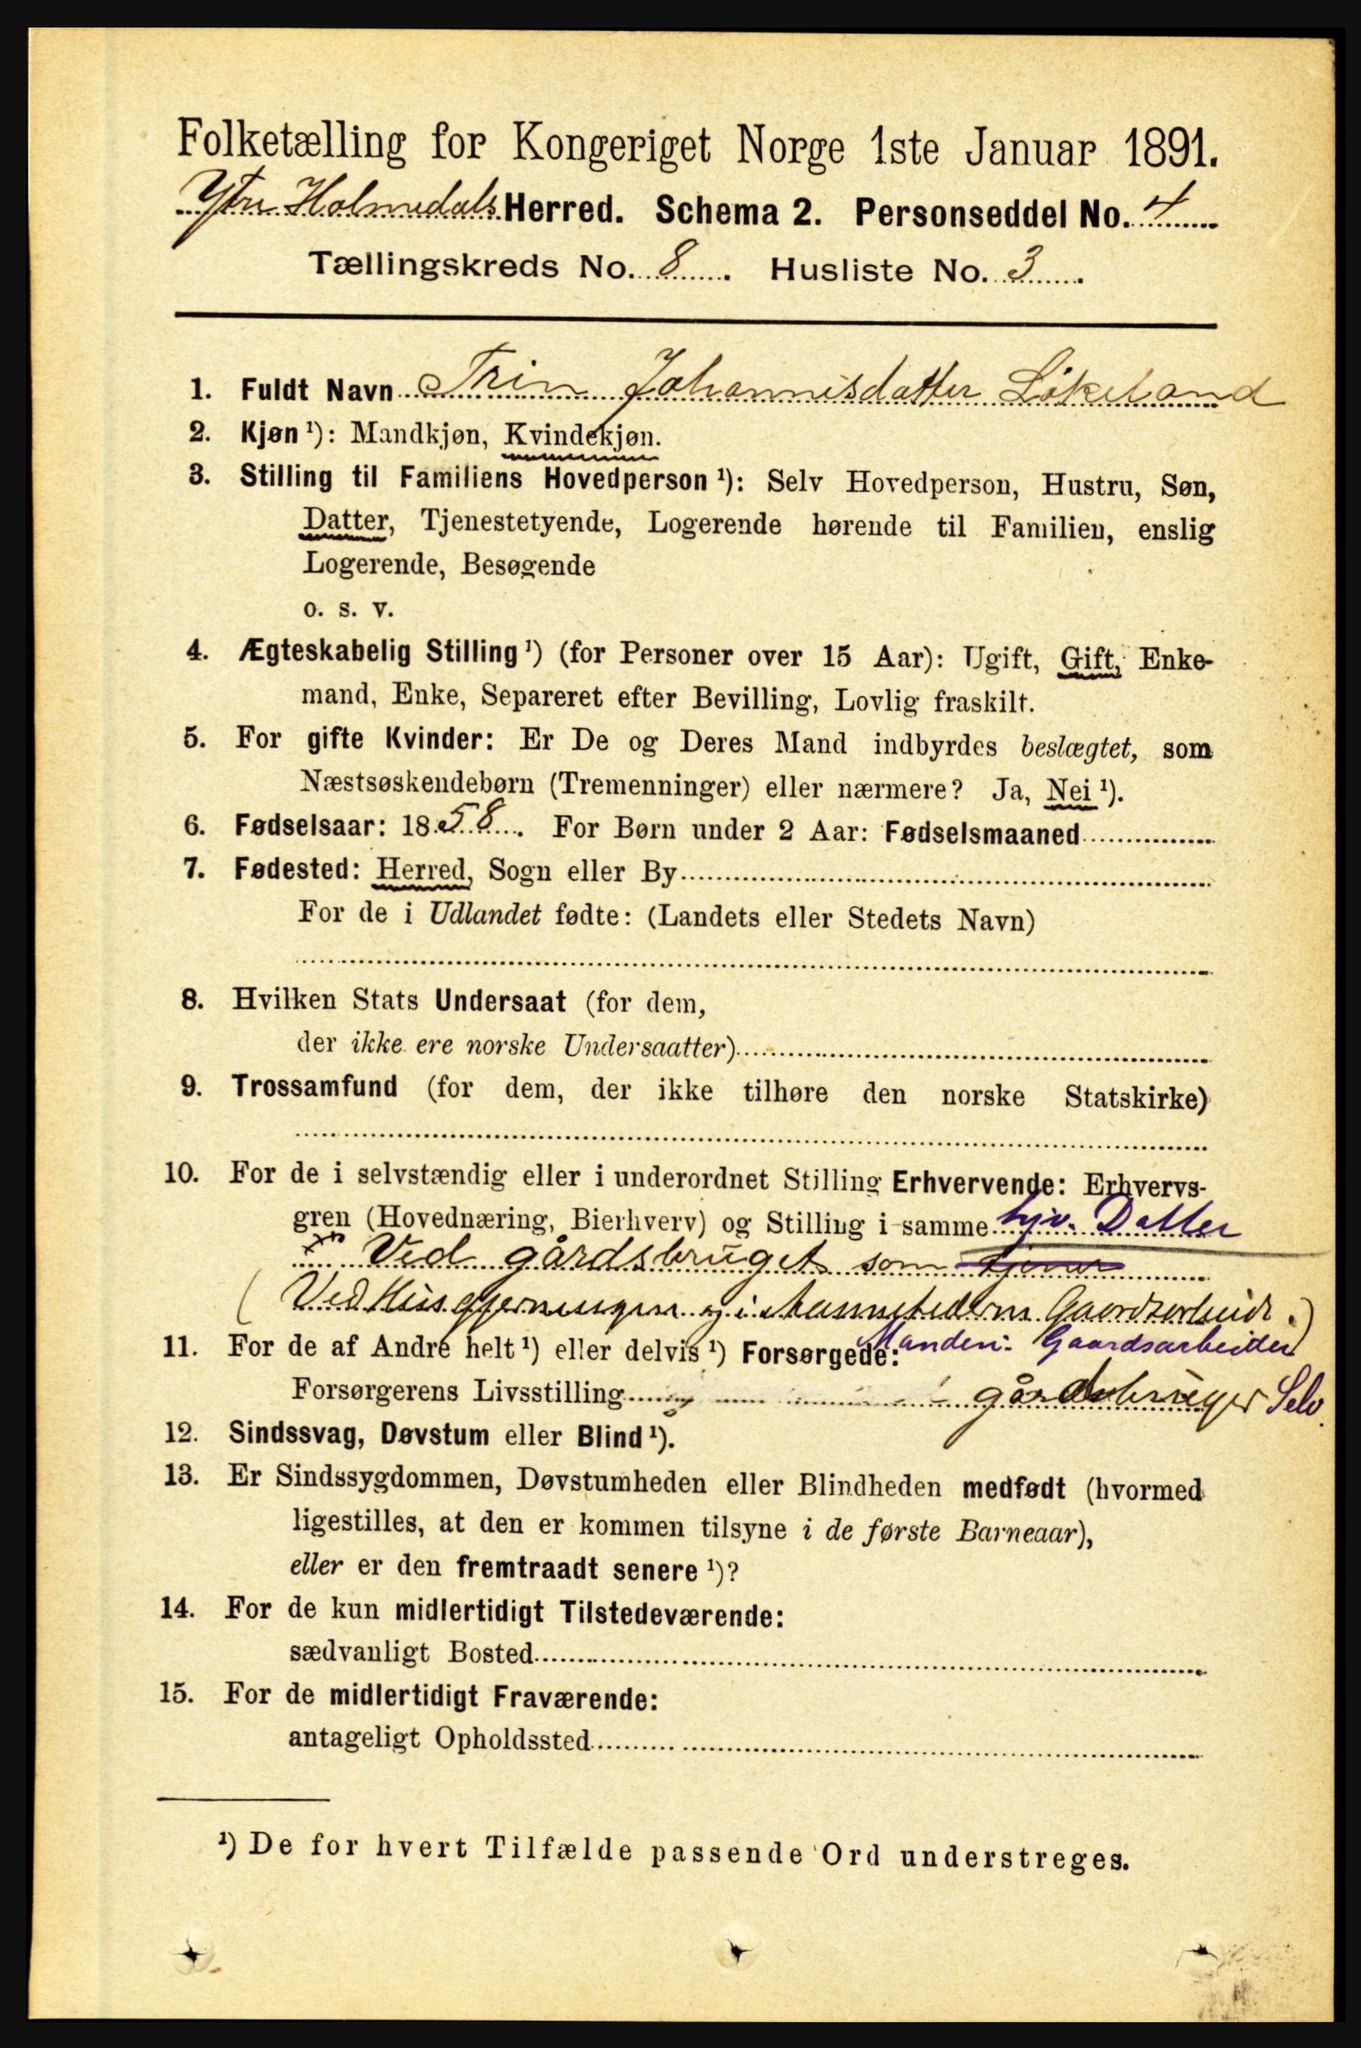 Folketælling for Kongeriget Norge 1ste Januar 1891.
Ytre Holmedals Herred. Schema 2. Personseddel No. 4
Tællingskreds No. 8. Husliste No. 3.
1. Fuldt Navn Trin Johannisdatter Løkeland
2. Kjøn ¹): Mandkjøn, Kvindekjøn.
3. Stilling til Familiens Hovedperson ¹): Selv Hovedperson, Hustru, Søn,
Datter, Tjenestetyende, Logerende hørende til Familien, enslig
Logerende, Besøgende
o. s. v.
4. Ægteskabelig Stilling ¹) (for Personer over 15 Aar): Ugift, Gift, Enke-
mand, Enke, Separeret efter Bevilling, Lovlig fraskilt.
5. For gifte Kvinder: Er De og Deres Mand indbyrdes beslægtet, som
Næstsøskendebørn (Tremenninger) eller nærmere? Ja, Nei ¹).
6. Fødselsaar: 1858. For Børn under 2 Aar: Fødselsmaaned
7. Fødested: Herred, Sogn eller By
For de i Udlandet fødte: (Landets eller Stedets Navn)
8. Hvilken Stats Undersaat (for dem,
der ikke ere norske Undersaatter)
9. Trossamfund (for dem, der ikke tilhøre den norske Statskirke)
10. For de i selvstændig eller i underordnet Stilling Erhvervende: Erhvervs-
gren (Hovednæring, Bierhverv) og Stilling i samme hjv. Datter
Ved gårdsbruget som
(Ved Husgjerningen og i Gaardsarbeide.)
11. For de af Andre helt ¹) eller delvis ¹) Forsørgede: Manden: Gaardsarbeider
Forsørgerens Livsstilling gårdbruger Selv.
12. Sindssvag, Døvstum eller Blind ¹).
13. Er Sindssygdommen, Døvstumheden eller Blindheden medfødt (hvormed
ligestilles, at den er kommen tilsyne i de første Barneaar),
eller er den fremtraadt senere ¹)?
14. For de kun midlertidigt Tilstedeværende:
sædvanligt Bosted
15. For de midlertidigt Fraværende:
antageligt Opholdssted
¹) De for hvert Tilfælde passende Ord understreges.